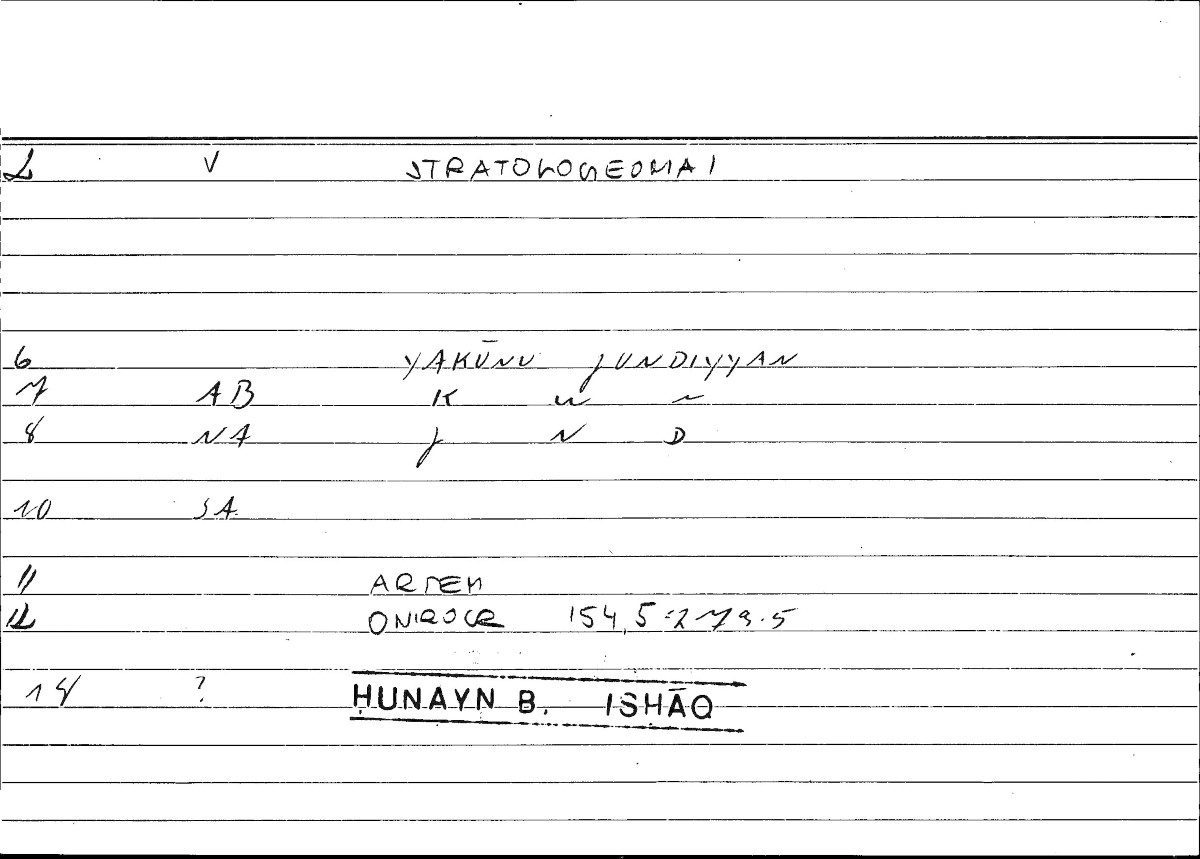 2 V STRATOLOGEOMAI
6 YAKŪNU JUNDIYYAN
7 AB K W N
8 NA J N D
10 SA
11 ARTEM
12 ONIROCR 154,5:279.5
14 ? ḤUNAYN B. ISḤĀQ